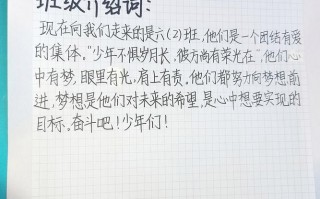 班级介绍词：
现在向我们走来的是六(2)班，他们是一个团结有爱
的集体，"少年不惧岁月长，彼方尚有荣光在"，他们心
中有梦，眼里有光，肩上有责，他们都努力向梦想前
进，梦想是他们对未来的希望，是心中想要实现的
目标，奋斗吧！少年们！